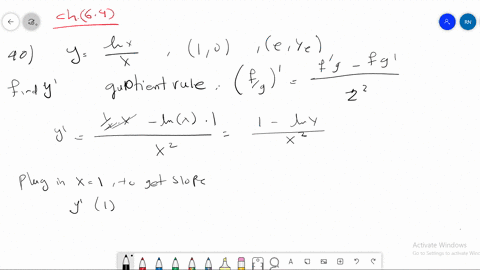 ch(6.4)
40) y = lnx/x , (1,0) , (e, 1/e)
find y' quotient rule : (f/g)' = f'g - fg' / g²
y' = 1/x·x - ln(x)·1 / x² = 1 - lnx / x²
plug in x=1, to get slope
y' (1)
Activate Windows
Go to Settings to activate Windows.
RN